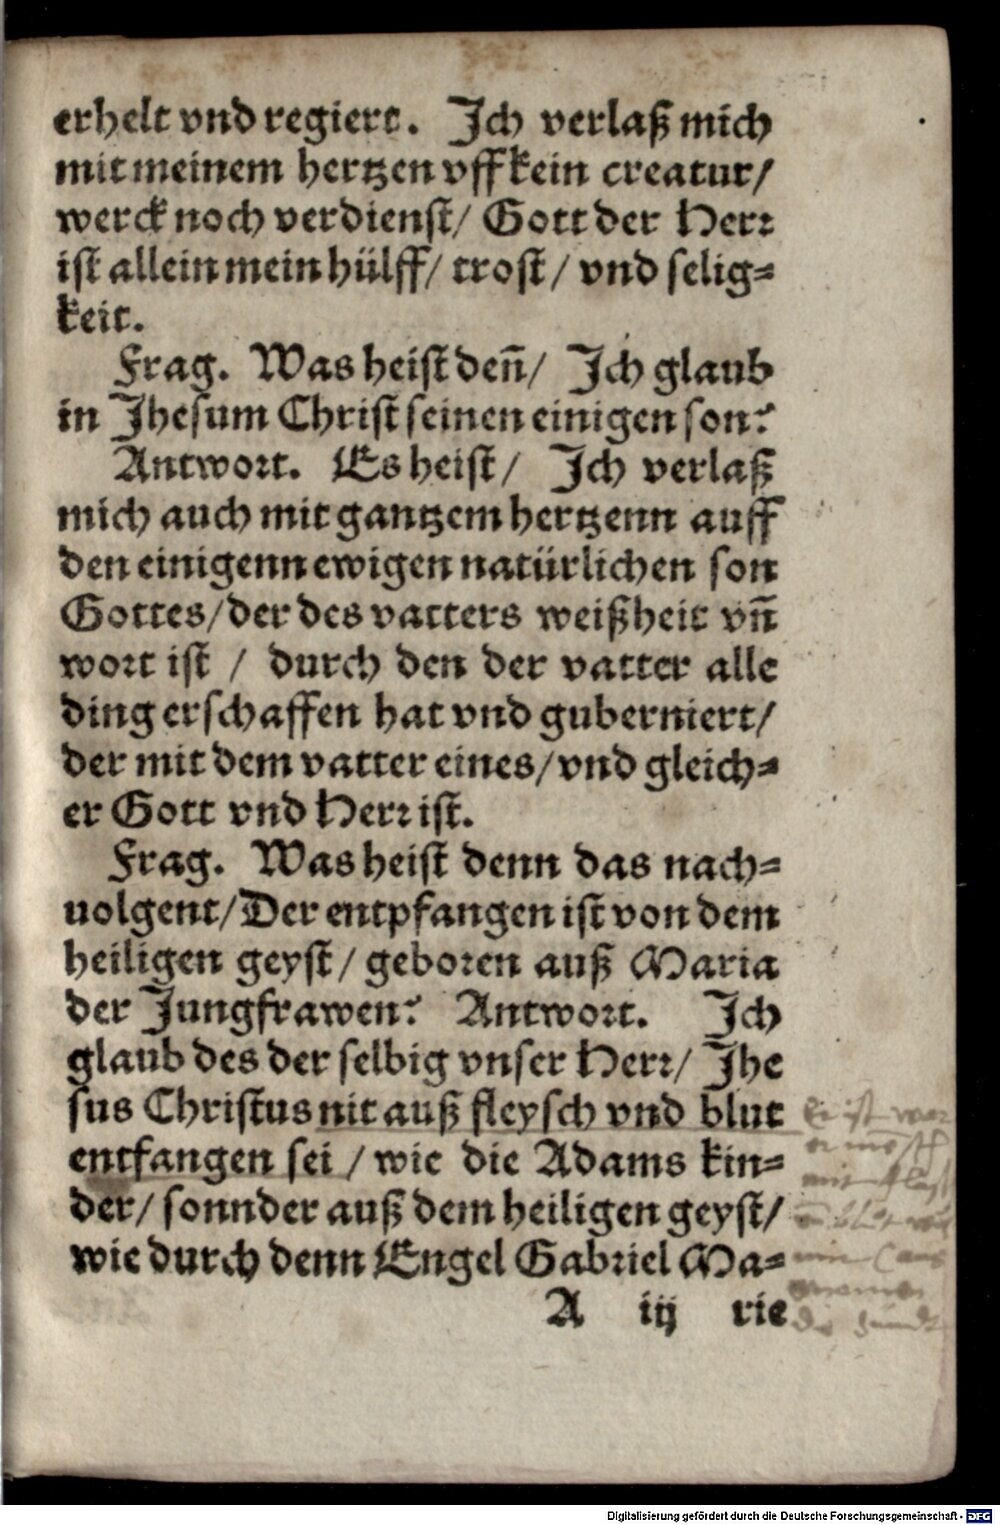 erhelt vnd regiert. Jch verlaß mich
mit meinem hertzen vff kein creatur/
werck noch verdienst/ Gott der Herr
ist allein mein hülff/ trost/ vnd selig⸗
keit.
Frag. Was heist deñ/ Jch glaub
in Jhesum Christ seinen einigen son?
Antwort. Es heist/ Jch verlaß
mich auch mit gantzem hertzenn auff
den einigenn ewigen natürlichen son
Gottes/der des vatters weißheit vñ
wort ist / durch den der vatter alle
ding erschaffen hat vnd guberniert/
der mit dem vatter eines/vnd gleich⸗
er Gott vnd Herr ist.
Frag. Was heist denn das nach⸗
uolgent/Der entpfangen ist von dem
heiligen geyst/ geboren auß Maria
der Jungfrawen? Antwort. Jch
glaub des der selbig vnser Herr/ Jhe
sus Christus nit auß fleysch vnd blut
entfangen sei / wie die Adams kin⸗
der/ sonnder auß dem heiligen geyst/
wie durch denn Engel Gabriel Ma⸗
A iij rie
Er ist war
mit
die sündt
Digitalisierung gefördert durch die Deutsche Forschungsgemeinschaft - DFG